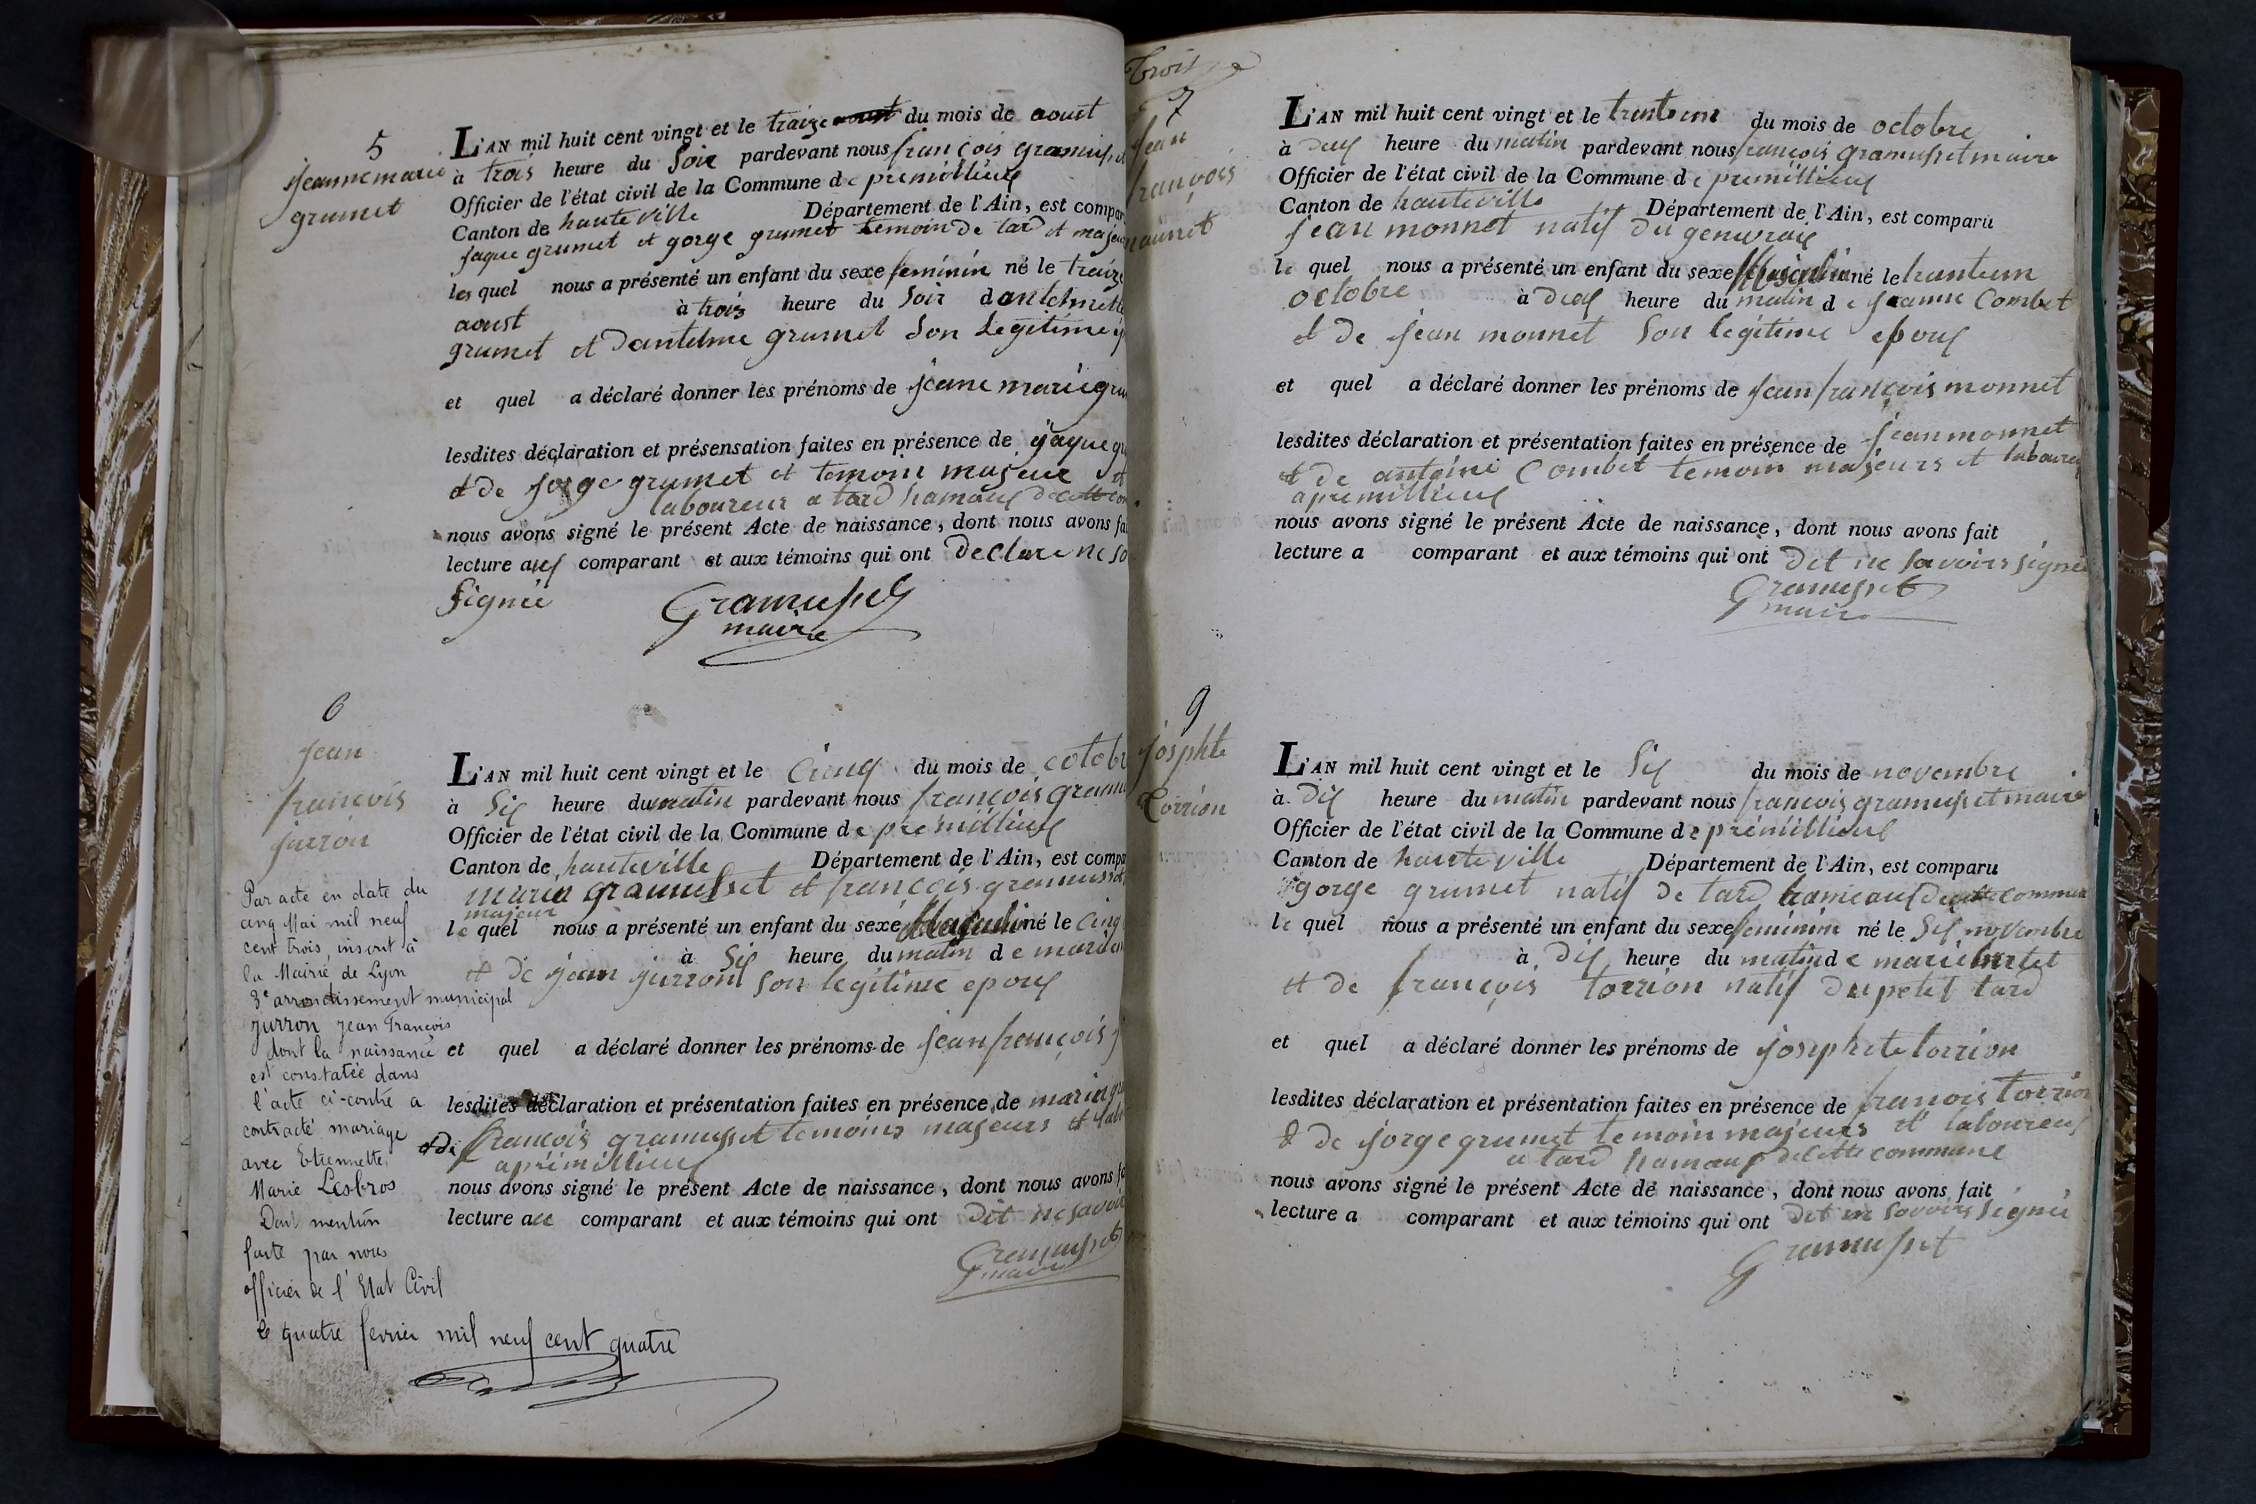 5
jeanne marie
grumet
L'AN mil huit cent vingt et le traize aoust du mois de aoust
à trois heure du Soir pardevant nous françois gramusset
Officier de l'état civil de la Commune de premillieux
Canton de hauteville Département de l'Ain, est compar
jaque grumet et gorge grumet temoin De tard et majeur
les quel nous a présenté un enfant du sexe feminin né le traize
aoust à trois heure du Soir dantelmette
grumet et Dantelme grumet Son Legitime
et quel a déclaré donner les prénoms de jeane marie gru
lesdites déclaration et présensation faites en présence de jaque gr
et de jorge grumet et temoin majeur et
laboureur a tard hamaux de cette com
nous avons signé le présent Acte de naissance, dont nous avons fa
lecture aux comparant et aux témoins qui ont Declare ne so
Signié
Gramusset
maire
6
jean
françois
jurron
Par acte en date du
cinq Mai mil neuf
cent trois, inscrit à
la Mairie de Lyon
3e arrondissement municipal
Jurron Jean François
dont la naissance
est constatée dans
l'acte ci-contre a
contracté mariage
avec Etiennette
Marie Lesbros
Dont mention
faite par nous
officier de l'Etat Civil
le quatre fevrier mil neuf cent quatre
L'AN mil huit cent vingt et le Cinq du mois de octobr
à Six heure du matin pardevant nous françois gramu
Officier de l'état civil de la Commune de premillieux
Canton de hauteville Département de l'Ain, est compa
maria gramusset et françois gramusset
majeur
le quel nous a présenté un enfant du sexe Masculin né le cinq
à Six heure du matin de
et de jean jurront Son legitime epoux
et quel a déclaré donner les prénoms de jean françois j
lesdites déclaration et présentation faites en présence de maria gra
et de françois gramusset temoins majeurs et labo
a premillieux
nous avons signé le présent Acte de naissance, dont nous avons fa
lecture au comparant et aux témoins qui ont Dit ne savoir
Gramusset
maire
Trois
7
jean
françois
monnet
L'AN mil huit cent vingt et le trenteun du mois de octobre
à Deux heure du matin pardevant nous françois gramusset maire
Officier de l'état civil de la Commune de premillieux
Canton de hauteville Département de l'Ain, est comparu
jean monnet natif Du genevray
le quel nous a présenté un enfant du sexe Masculin né le trenteun
octobre à Deux heure du matin de jeanne Combet
et de jean monnet Son legitime epoux
et quel a déclaré donner les prénoms de jean françois monnet
lesdites déclaration et présentation faites en présence de jean monnet
et de antoine Combet temoin majeurs et laboureu
a premillieux
nous avons signé le présent Acte de naissance, dont nous avons fait
lecture a comparant et aux témoins qui ont Dit ne savoirs signié
Gramusset
maire
9
josphte
Torrion
L'AN mil huit cent vingt et le Six du mois de novembre
à Dix heure du matin pardevant nous françois gramusset maire
Officier de l'état civil de la Commune de premillieux
Canton de hauteville Département de l'Ain, est comparu
gorge grumet natif De tard hameaux de cette commun
le quel nous a présenté un enfant du sexe feminin né le Six novembre
à Dix heure du matin de marie bertet
et de françois torrion natif Du petit tard
et quel a déclaré donner les prénoms de josephete torrion
lesdites déclaration et présentation faites en présence de franois torrion
& de jorge grumet temoin majeurs et laboureux
a tard hamaux de Cette commune
nous avons signé le présent Acte de naissance, dont nous avons fait
lecture a comparant et aux témoins qui ont Dit ne savoirs signié
Gramusset